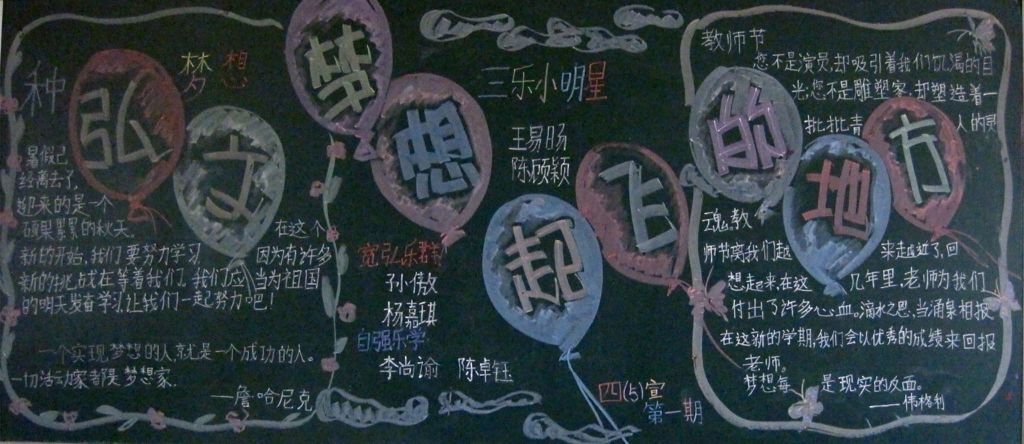 弘文梦想起飞的地方
种梦想
暑假已
经离去了,
迎来的是一个
硕果累累的秋天。在这个
新的开始,我们要努力学习 因为有许多
新的挑战在等着我们。我们应 当为祖国
的明天发奋学习,让我们一起努力吧!
一个实现梦想的人,就是一个成功的人。
一切活动家都是梦想家.
——詹·哈尼克
三乐小明星
王易旸
陈顾颖
宽弘乐群
孙傲
杨嘉琪
自强乐学
李尚谕 陈卓钰
四(5)宣
第一期
教师节
您不是演员,却吸引着我们饥渴的目
光;您不是雕塑家,却塑造着一
批批青 人的灵
魂,教
师节离我们越 来越近了,回
想起来,在这 几年里,老师为我们
付出了许多心血。滴水之恩,当涌泉相报
在这新的学期,我们会以优秀的成绩来回报
老师。
梦想每 是现实的反面。
——伟格利